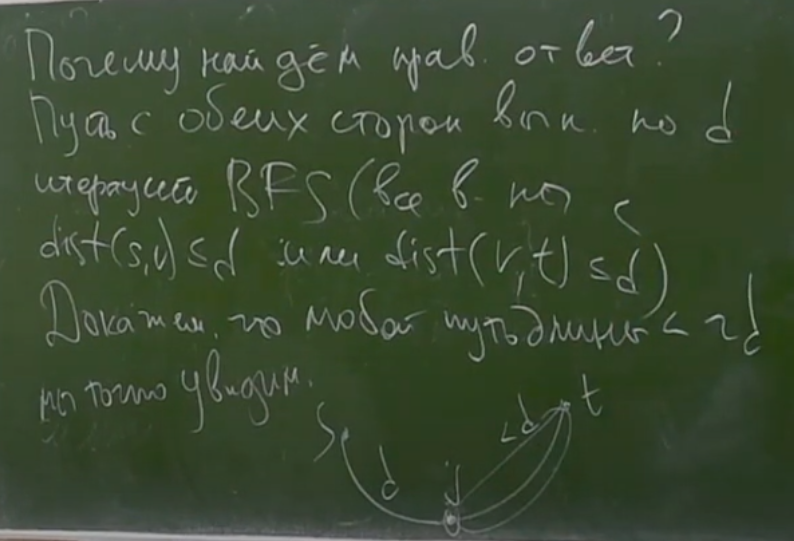 Почему найдём прав. ответ?
Пусть с обеих сторон вып. по d
итераций BFS (все в. на с
dist(s,v) ≤ d или dist(v,t) ≤ d)
Докажем, что любой путь длины < 2d
мы точно увидим.
S d v <d t